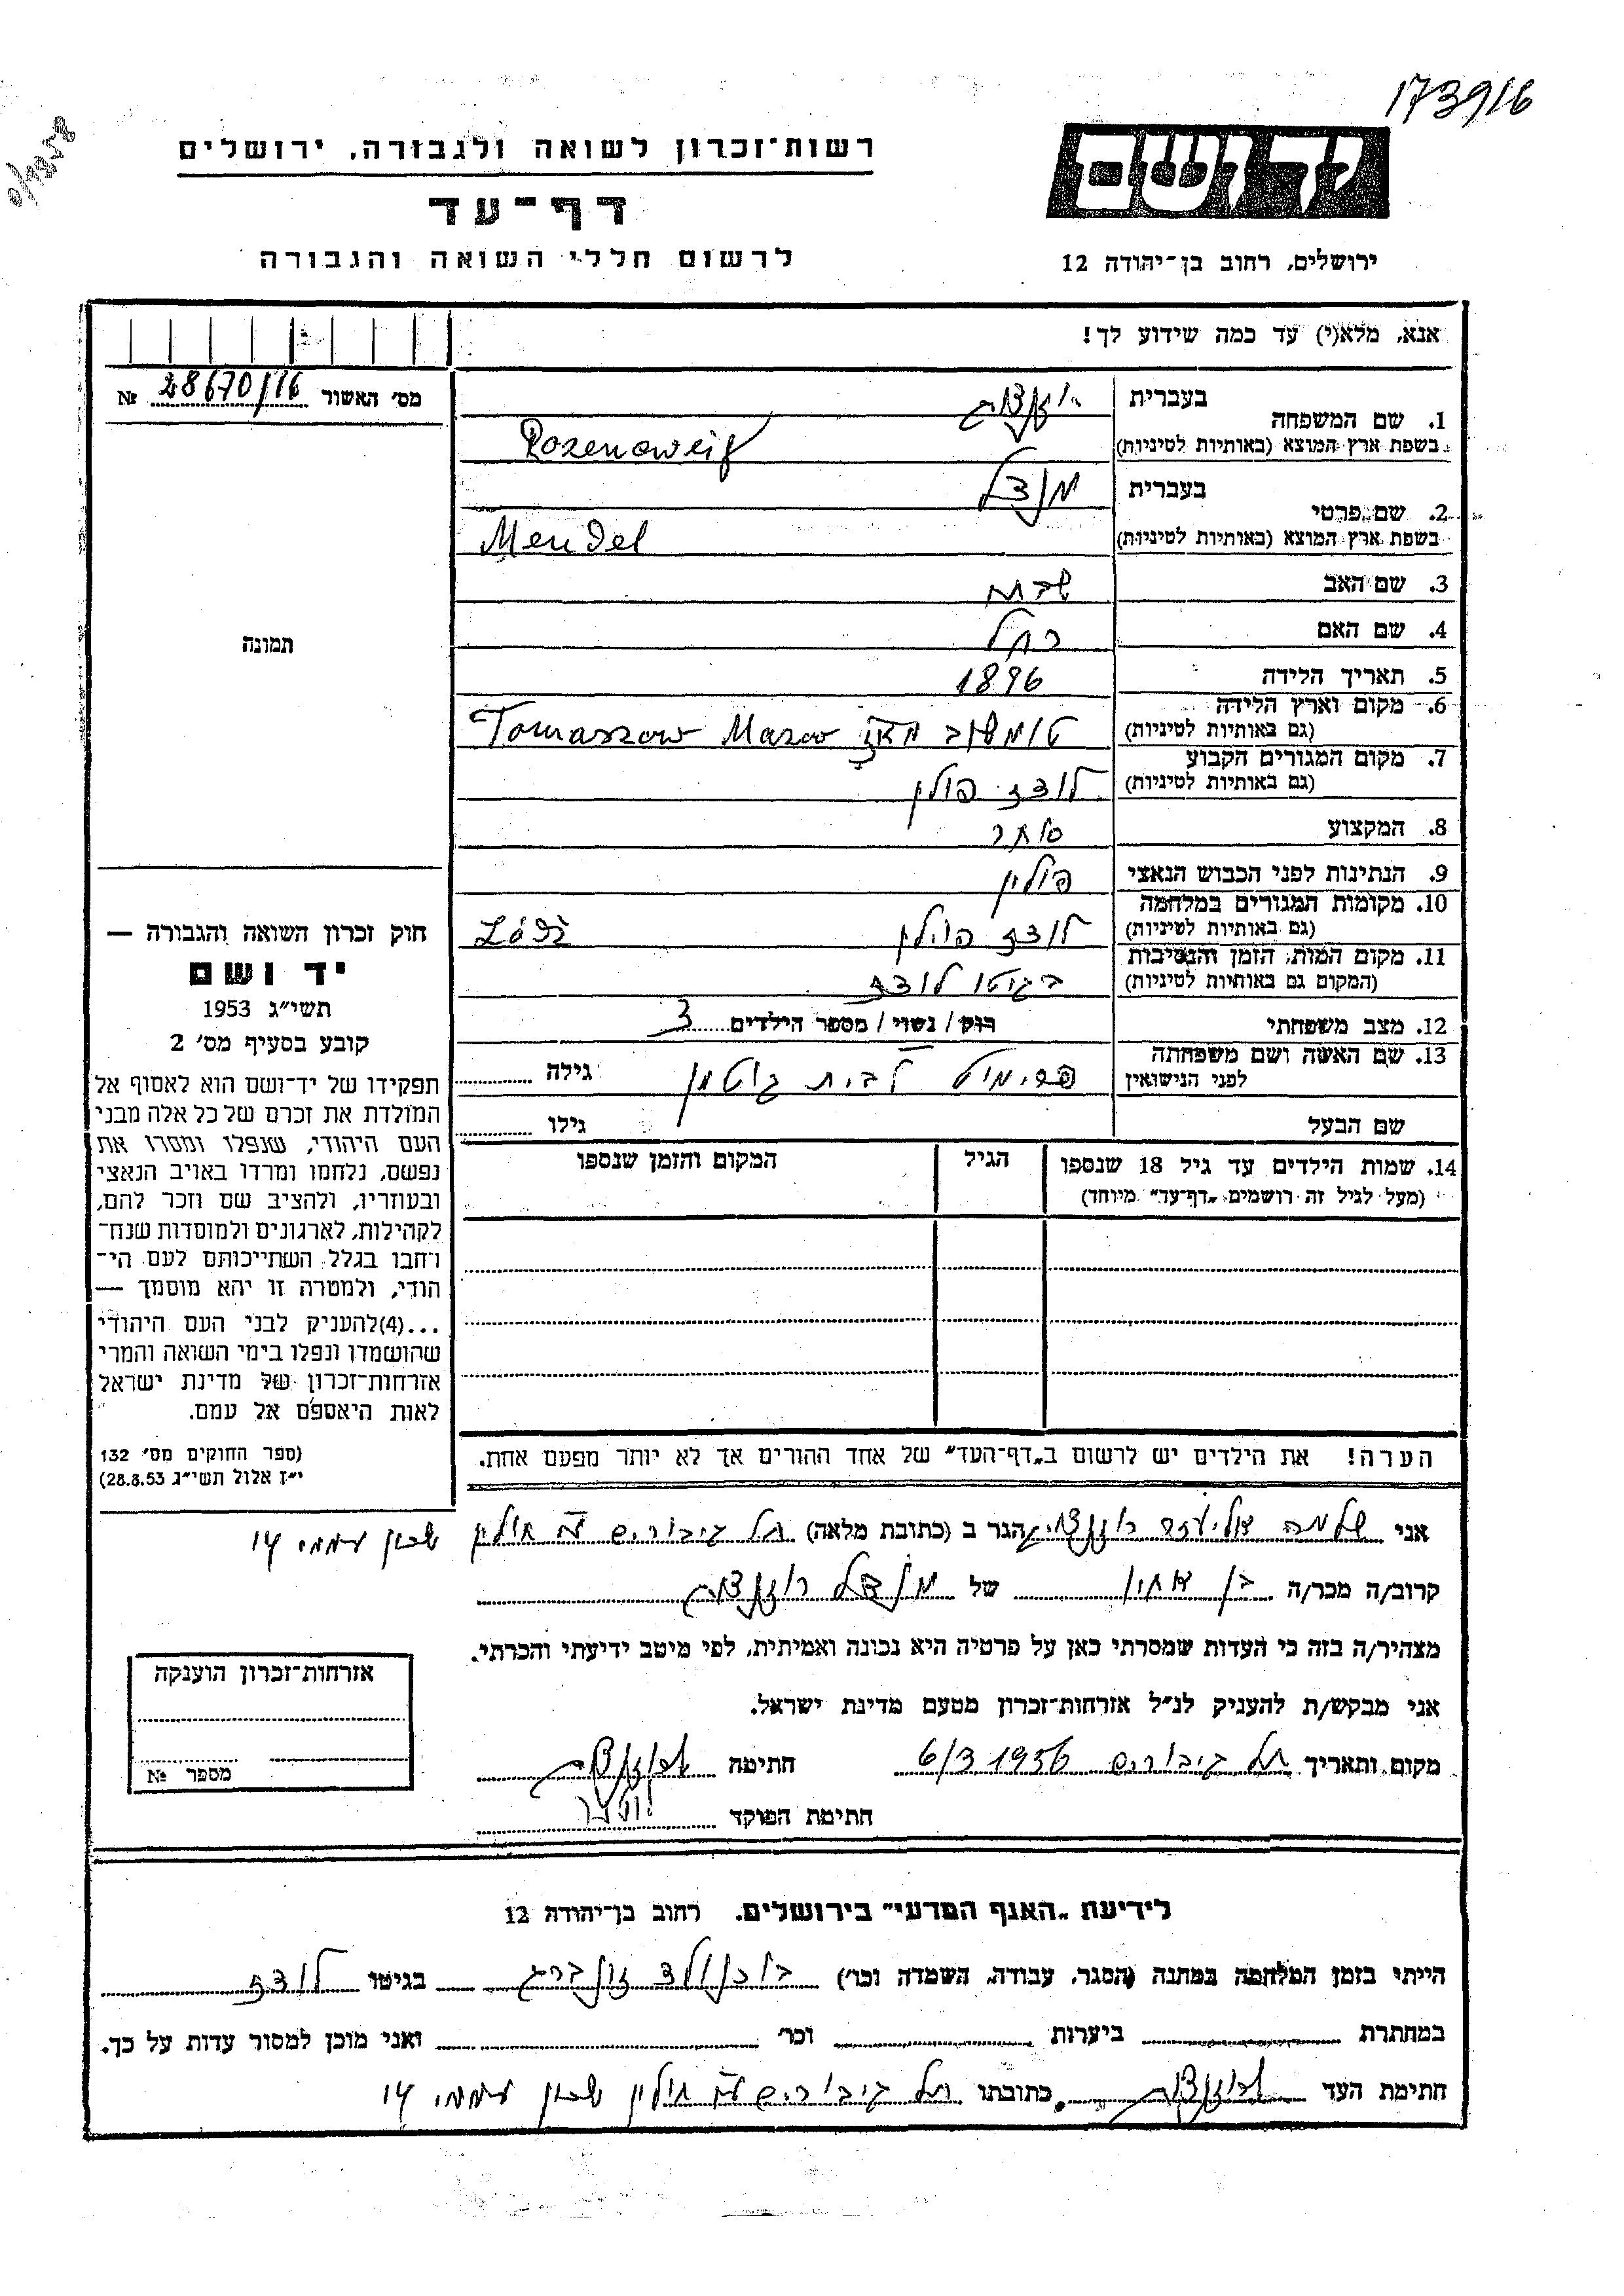 173916
יד ושם
רשות־זכרון לשואה ולגבורה, ירושלים
דף־עד
לרשום חללי השואה והגבורה
ירושלים, רחוב בן־יהודה 12
אנא, מלא(י) עד כמה שידוע לך!
מס' האשור 28670/16 №
1. שם המשפחה
בעברית
בשפת ארץ המוצא (באותיות לטיניות) Rozencweig
2. שם פרטי
בעברית מנדל
בשפת ארץ המוצא (באותיות לטיניות) Mendel
3. שם האב שבתי
4. שם האם רחל
5. תאריך הלידה 1896
6. מקום וארץ הלידה
(גם באותיות לטיניות) טומשוב מאז Tomaszow Mazow
7. מקום המגורים הקבוע
(גם באותיות לטיניות) לודז פולין
8. המקצוע סוחר
9. הנתינות לפני הכבוש הנאצי פולין
10. מקומות המגורים במלחמה
(גם באותיות לטיניות) לודז פולין Łódź
11. מקום המות, הזמן והנסיבות
(המקום גם באותיות לטיניות) בגיטו לודז
12. מצב משפחתי רוק / נשוי / מספר הילדים 3
13. שם האשה ושם משפחתה
לפני הנישואין לבית גוטמן גילה
שם הבעל גילו
14. שמות הילדים עד גיל 18 שנספו הגיל המקום והזמן שנספו
(מעל לגיל זה רושמים „דף־עד" מיוחד)
הערה! את הילדים יש לרשום ב„דף־העד" של אחד ההורים אך לא יותר מפעם אחת.
תמונה
חוק זכרון השואה והגבורה —
יד ושם
תשי"ג 1953
קובע בסעיף מס' 2
תפקידו של יד־ושם הוא לאסוף אל
המולדת את זכרם של כל אלה מבני
העם היהודי, שנפלו ומסרו את
נפשם, נלחמו ומרדו באויב הנאצי
ובעוזריו, ולהציב שם וזכר להם,
לקהילות, לארגונים ולמוסדות שנח־
רחבו בגלל השתייכותם לעם הי־
הודי, ולמטרה זו יהא מוסמך —
...(4)להעניק לבני העם היהודי
שהושמדו ונפלו בימי השואה והמרי
אזרחות־זכרון של מדינת ישראל
לאות היאספם אל עמם.
(ספר החוקים מס' 132
י"ז אלול תשי"ג 28.8.53)
אני שלמה אליעזר רוזנצויג הגר ב (כתובת מלאה) תל גיבורים חולין שכון עממי 14
קרוב/ה מכר/ה בן אחיו של מנדל רוזנצויג
מצהיר/ה בזה כי העדות שמסרתי כאן על פרטיה היא נכונה ואמיתית, לפי מיטב ידיעתי והכרתי.
אני מבקש/ת להעניק לנ"ל אזרחות־זכרון מטעם מדינת ישראל.
מקום ותאריך תל גיבורים 6/3 1956 חתימה
חתימת הפוקד
אזרחות־זכרון הוענקה
מספר №
לידיעת „האגף המדעי" בירושלים. רחוב בן־יהודה 12
הייתי בזמן המלחמה במחנה (הסגר, עבודה, השמדה וכו') בוכנולד זונברג בגיטו לודז
במחתרת ביערות וכו' ואני מוכן למסור עדות על כך.
חתימת העד כתובתו תל גיבורים חולין שכון עממי 14